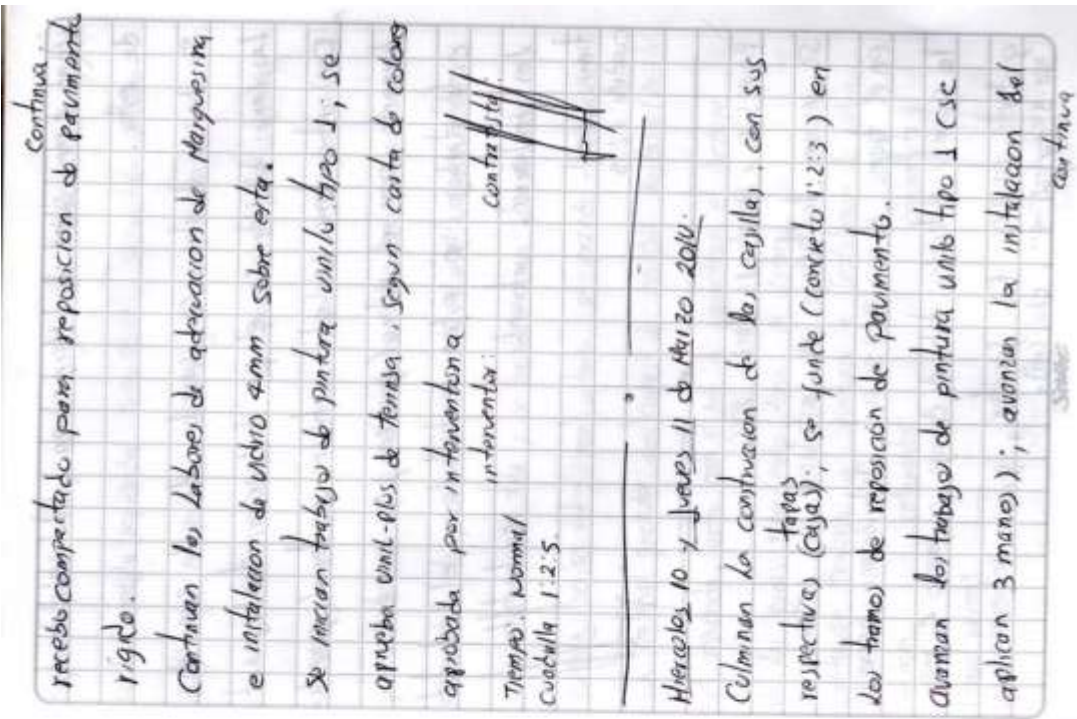 continua.
recebo compactado para reposicion de pavimento
rigido.
Continuan las Labores de adecuacion de Marquesina
e instalacion de vidrio 4mm sobre esta.
Se inician trabajo de pintura vinilo tipo 1; se
aprueba vinil-plus de Terinsa, segun carta de colores
aprobada por interventoria
interventor: contratista:
Tiempo: Normal
Cuadrilla 1:2:5
Miercoles 10 y Jueves 11 de Marzo 2010.
Culminan la construccion de las cajillas, con sus
tapas
respectivas (cajas); se funde (concreto 1:2:3) en
los tramos de reposicion de pavimento.
avanzan los trabajo de pintura vinilo tipo 1 (se
aplican 3 manos)); avanzan la instalacion del
continua